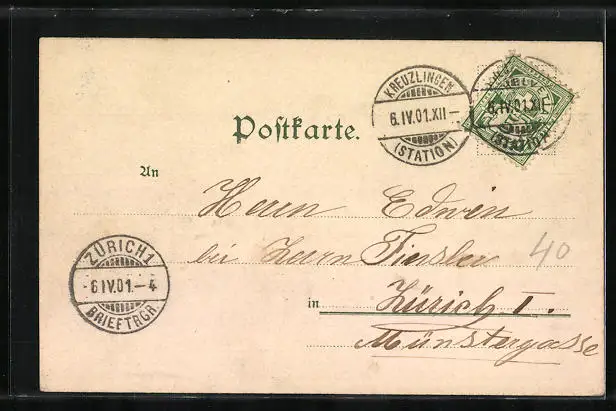 KREUZLINGEN
6.IV.01.XII–
(STATION)
6.IV.01.XII–
(STATION)
Postkarte.
An
Herrn Edwin
bei Herrn Tinsler
40
in Zürich I.
Münstergasse
ZÜRICH 1
-6.IV.01.-4
BRIEFTRGR.